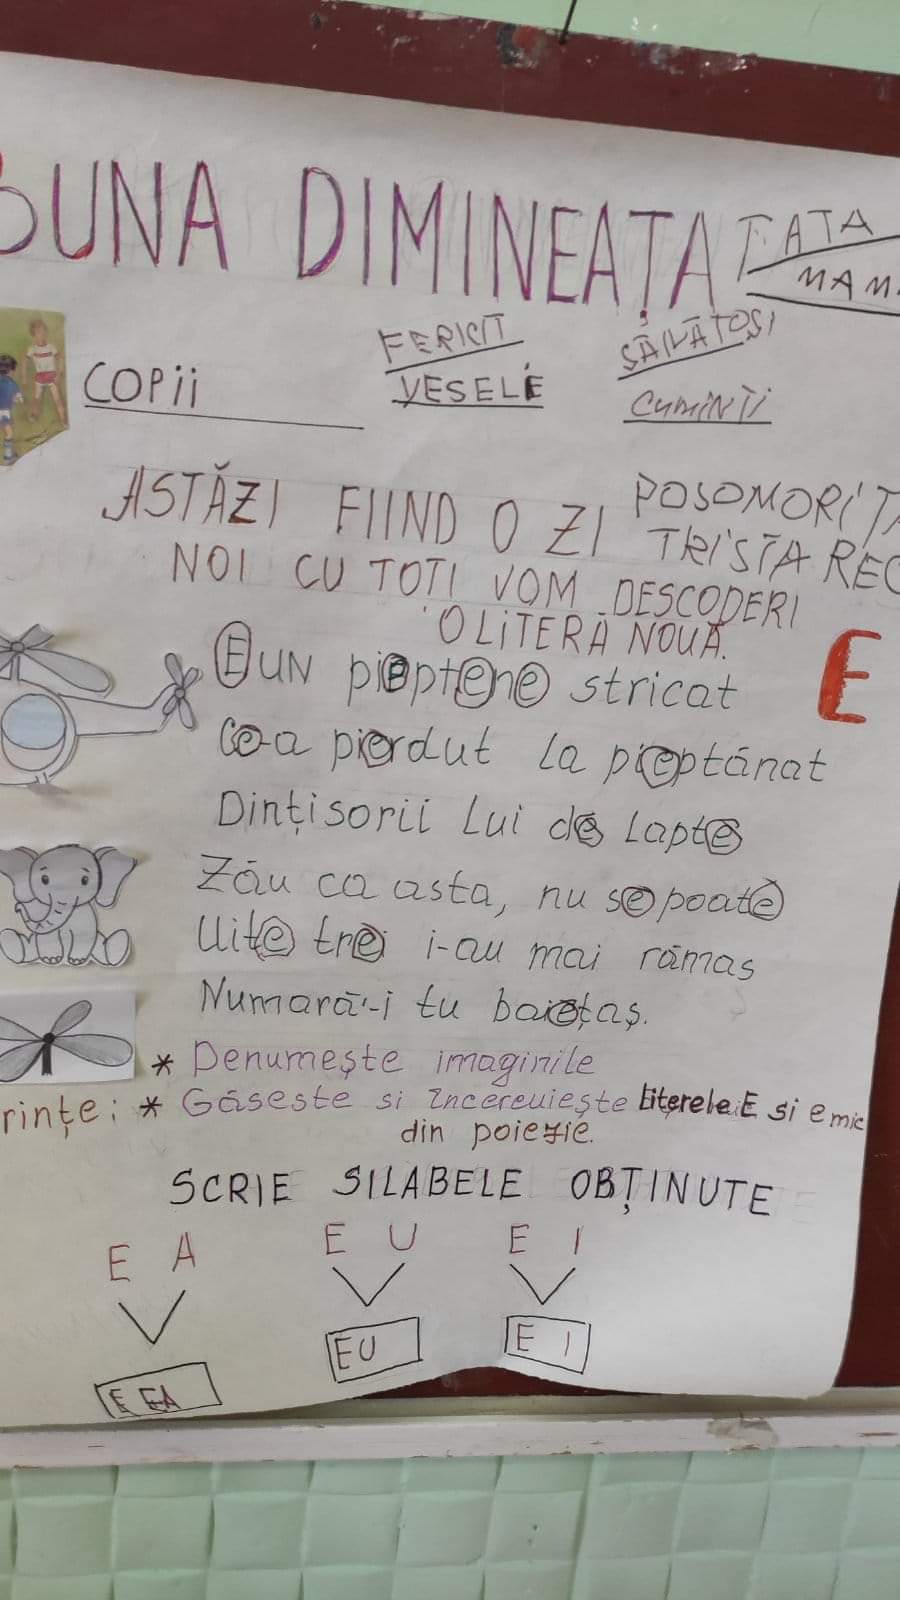 BUNA DIMINEAȚA TATA
MAM
COPii FERICIT SĂNĂTOȘI
VESELE CUMINȚI
ASTĂZI FIIND O ZI POSOMORITA
TRISTA REC
NOI CU TOTI VOM DESCODERI
O LITERĂ NOUĂ.
E UN pieptene stricat E
Ce-a pierdut la pieptănat
Dințisorii lui de lapte
Zău ca asta, nu se poate
Uite trei i-au mai rămas
Numară-i tu baiețaș.
* Denumește imaginile
rințe: * Găseste si Încercuiește Literele E si e mic
din poiezie.
SCRIE SILABELE OBȚINUTE
E A E U E I
E EA EU E I